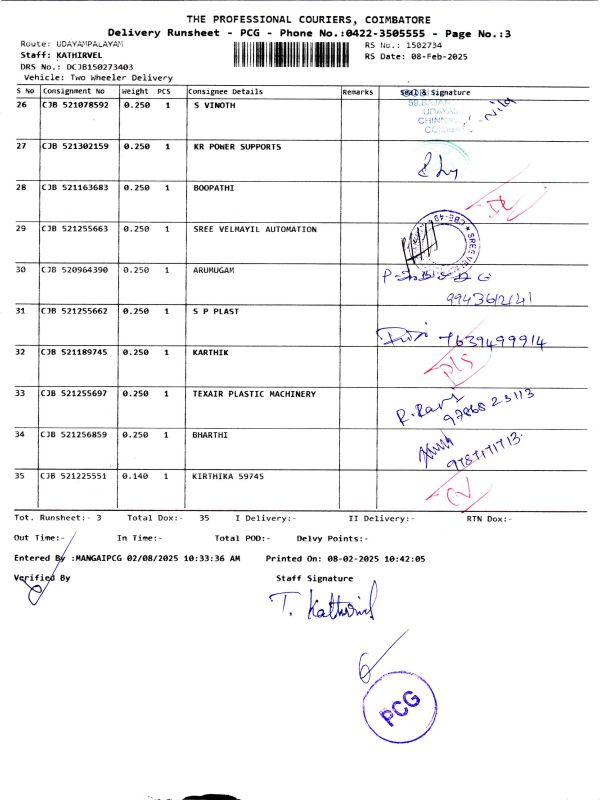 THE PROFESSIONAL COURIERS, COIMBATORE
Delivery Runsheet - PCG - Phone No.:0422-3505555 - Page No.:3
Route: UDAYAMPALAYAM RS No.: 1502734
Staff: KATHIRVEL RS Date: 08-Feb-2025
DRS No.: DCJB150273403
Vehicle: Two Wheeler Delivery
S No Consignment No Weight PCS Consignee Details Remarks Seal & Signature
26 CJB 521078592 0.250 1 S VINOTH
27 CJB 521302159 0.250 1 KR POWER SUPPORTS
28 CJB 521163683 0.250 1 BOOPATHI
29 CJB 521255663 0.250 1 SREE VELMAYIL AUTOMATION
30 CJB 520964390 0.250 1 ARUMUGAM
9943612141
31 CJB 521255662 0.250 1 S P PLAST
7639499914
32 CJB 521189745 0.250 1 KARTHIK
33 CJB 521255697 0.250 1 TEXAIR PLASTIC MACHINERY
R. Ravi
97868 23113
34 CJB 521256859 0.250 1 BHARTHI
9787171713
35 CJB 521225551 0.140 1 KIRTHIKA 59745
Tot. Runsheet:- 3 Total Dox:- 35 I Delivery:- II Delivery:- RTN Dox:-
Out Time:- In Time:- Total POD:- Delvy Points:-
Entered By :MANGAIPCG 02/08/2025 10:33:36 AM Printed On: 08-02-2025 10:42:05
Verified By Staff Signature
T. Kathirvel
PCG